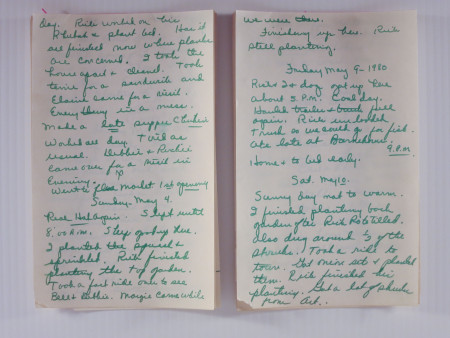 day. Rick worked on his
Rhubarb & plant bed. Hosta
are finished now where plants
are concerned. I took the
house apart & cleaned. Took
time for a sandwich and
Elaine came for a visit.
Everything in a mess.
Made a late supper
Worked all day. Tired as
usual. Debbie & Richie
came over for a visit in
Evening.
Went to flea market 1st opening
Sunday May 4.
Real Hot again. Slept until
8:00 a.m. Sleep good here.
I planted the squash &
sprinkled. Rick finished
planting the top garden.
Took a fast ride over to see
Bill & Ruthie. Margie came while
we were there.
Finishing up here. Rick
still planting.
Friday May 9 - 1980
Rick & I & dog got up here
about 5 P.M. Cool day.
again. Rick unloaded
Truck as we had to go for fish.
Ate late at
9 P.M.
Home & to bed early.
Sat. May 10.
Sunny day not to warm.
I finished planting back
garden after Rick Rototilled.
also dug around & of the
shrubs. Took a ride to
town. Got onion sets & planted
them. Rick finished his
planting. Got a lot of shrubs
from Art.